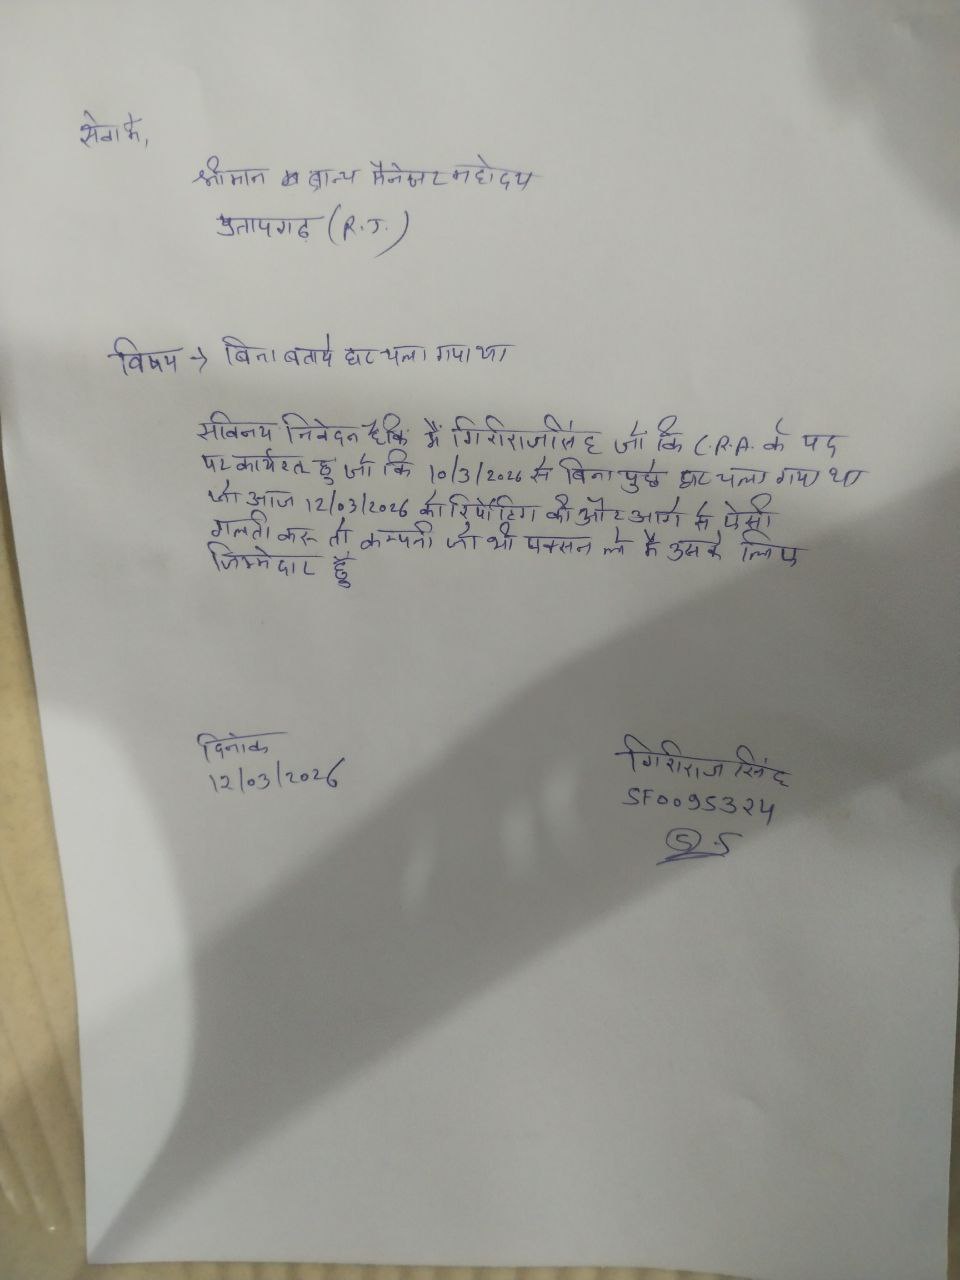 सेवा मे,
श्रीमान ब्रान्च मैनेजर महोदय
प्रतापगढ़ (R.J.)
विषय → बिना बताये घर चला गया था
सविनय निवेदन है कि मैं गिरीराज सिंह जो कि C.R.A. के पद
पर कार्यरत हु जो कि 10/3/2026 से बिना पुछे घर चला गया था
जो आज 12/03/2026 को रिर्पोटिग की और आगे से ऐसी
गलती करू तो कम्पनी जो भी एक्सन ले मै उसके लिए
जिम्मेदार हूँ
दिनांक
12/03/2026
गिरीराज सिंह
SF0095324